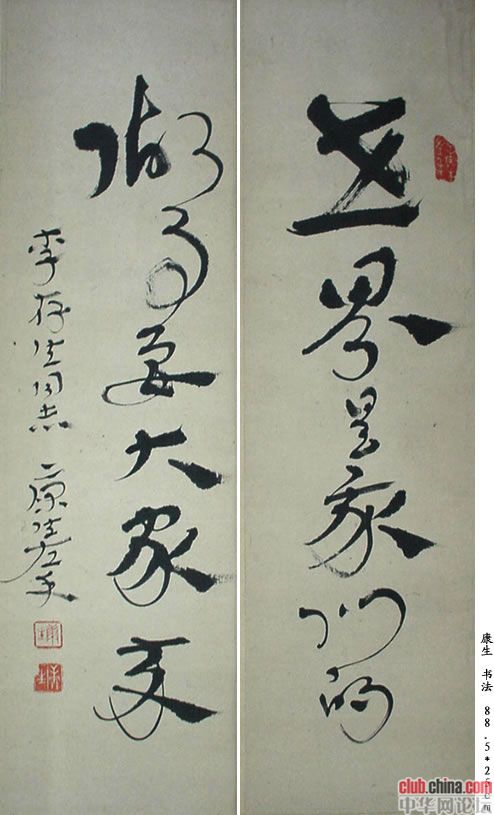 世界是我们的
做事要大家来
李存生同志
康生左手
康生 书法 88.5*26
club.china.com
中华网论坛